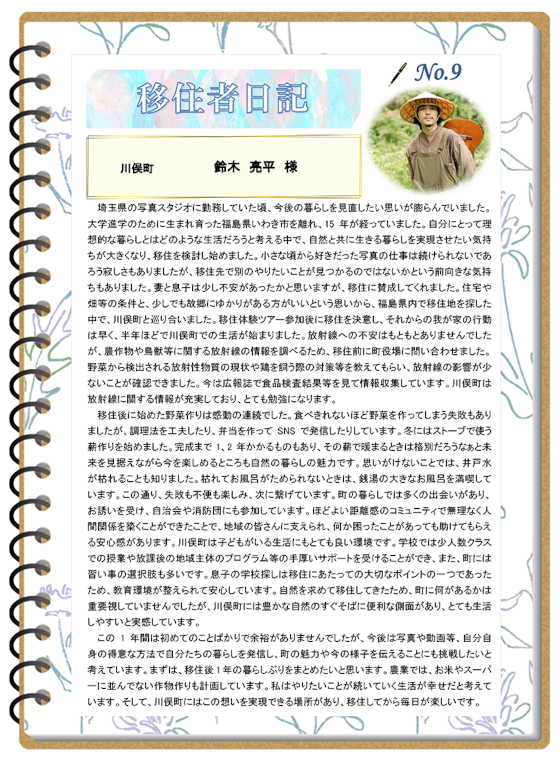 No.9
移住者日記
川俣町 鈴木 亮平 様
埼玉県の写真スタジオに勤務していた頃、今後の暮らしを見直したい思いが膨らんでいました。
大学進学のために生まれ育った福島県いわき市を離れ、15 年が経っていました。自分にとって理
想的な暮らしとはどのような生活だろうと考える中で、自然と共に生きる暮らしを実現させたい気持
ちが大きくなり、移住を検討し始めました。小さな頃から好きだった写真の仕事は続けられないであ
ろう寂しさもありましたが、移住先で別のやりたいことが見つかるのではないかという前向きな気持
ちもありました。妻と息子は少し不安があったかと思いますが、移住に賛成してくれました。住宅や
畑等の条件と、少しでも故郷にゆかりがある方がいいという思いから、福島県内で移住地を探した
中で、川俣町と巡り合いました。移住体験ツアー参加後に移住を決意し、それからの我が家の行動
は早く、半年ほどで川俣町での生活が始まりました。放射線への不安はもともとありませんでした
が、農作物や鳥獣等に関する放射線の情報を調べるため、移住前に町役場に問い合わせました。
野菜から検出される放射性物質の現状や鶏を飼う際の対策等を教えてもらい、放射線の影響が少
ないことが確認できました。今は広報誌で食品検査結果等を見て情報収集しています。川俣町は
放射線に関する情報が充実しており、とても勉強になります。
移住後に始めた野菜作りは感動の連続でした。食べきれないほど野菜を作ってしまう失敗もあり
ましたが、調理法を工夫したり、弁当を作って SNS で発信したりしています。冬にはストーブで使う
薪作りを始めました。完成まで 1、2 年かかるものもあり、その薪で暖まるときは格別だろうなぁと未
来を見据えながら今を楽しめるところも自然の暮らしの魅力です。思いがけないことでは、井戸水
が枯れることも知りました。枯れてお風呂がためられないときは、銭湯の大きなお風呂を満喫して
います。この通り、失敗も不便も楽しみ、次に繋げています。町の暮らしでは多くの出会いがあり、
お誘いを受け、自治会や消防団にも参加しています。ほどよい距離感のコミュニティで無理なく人
間関係を築くことができたことで、地域の皆さんに支えられ、何か困ったことがあっても助けてもらえ
る安心感があります。川俣町は子どもがいる生活にもとても良い環境です。学校では少人数クラス
での授業や放課後の地域主体のプログラム等の手厚いサポートを受けることができ、また、町には
習い事の選択肢も多いです。息子の学校探しは移住にあたっての大切なポイントの一つであった
ため、教育環境が整えられて安心しています。自然を求めて移住してきたため、町に何があるかは
重要視していませんでしたが、川俣町には豊かな自然のすぐそばに便利な側面があり、とても生活
しやすいと実感しています。
この 1 年間は初めてのことばかりで余裕がありませんでしたが、今後は写真や動画等、自分自
身の得意な方法で自分たちの暮らしを発信し、町の魅力や今の様子を伝えることにも挑戦したいと
考えています。まずは、移住後1年の暮らしぶりをまとめたいと思います。農業では、お米やスーパ
ーに並んでない作物作りも計画しています。私はやりたいことが続いていく生活が幸せだと考えて
います。そして、川俣町にはこの想いを実現できる場所があり、移住してから毎日が楽しいです。